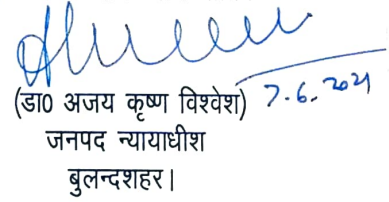 (डा0 अजय कृष्ण विश्वेश) 7.6.2021
जनपद न्यायाधीश
बुलन्दशहर।